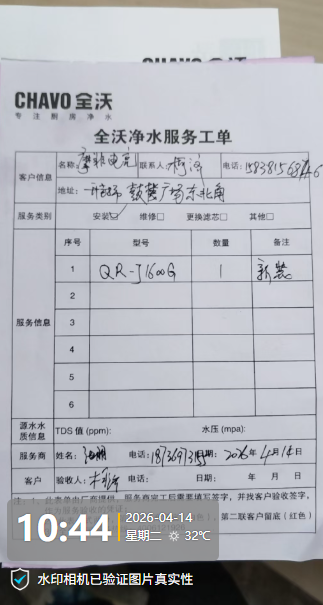 CHAVO 全沃
CHAVO 全沃
专注厨房净水
全沃净水服务工单
客户信息 名称: 联系人: 电话:
地址: 鼓楼广场东北角
服务类别 安装☑ 维修□ 更换滤芯□ 其他□
序号 型号 数量 备注
服务信息
1 QR-J1600G 1 新装
2
3
4
5
6
源水水质信息 TDS 值 (ppm): 水压 (mpa):
服务商 姓名: 电话: 日期: 2026年4月14日
客户 验收人: 电话: 日期: 年 月 日
注: 1、此表单由厂商提供, 服务商完工后需要填写签字, 并找客户验收签字,
作为服务验收的凭证
第二联客户留底 (红色)
10:44
2026-04-14
星期二 32℃
水印相机已验证图片真实性